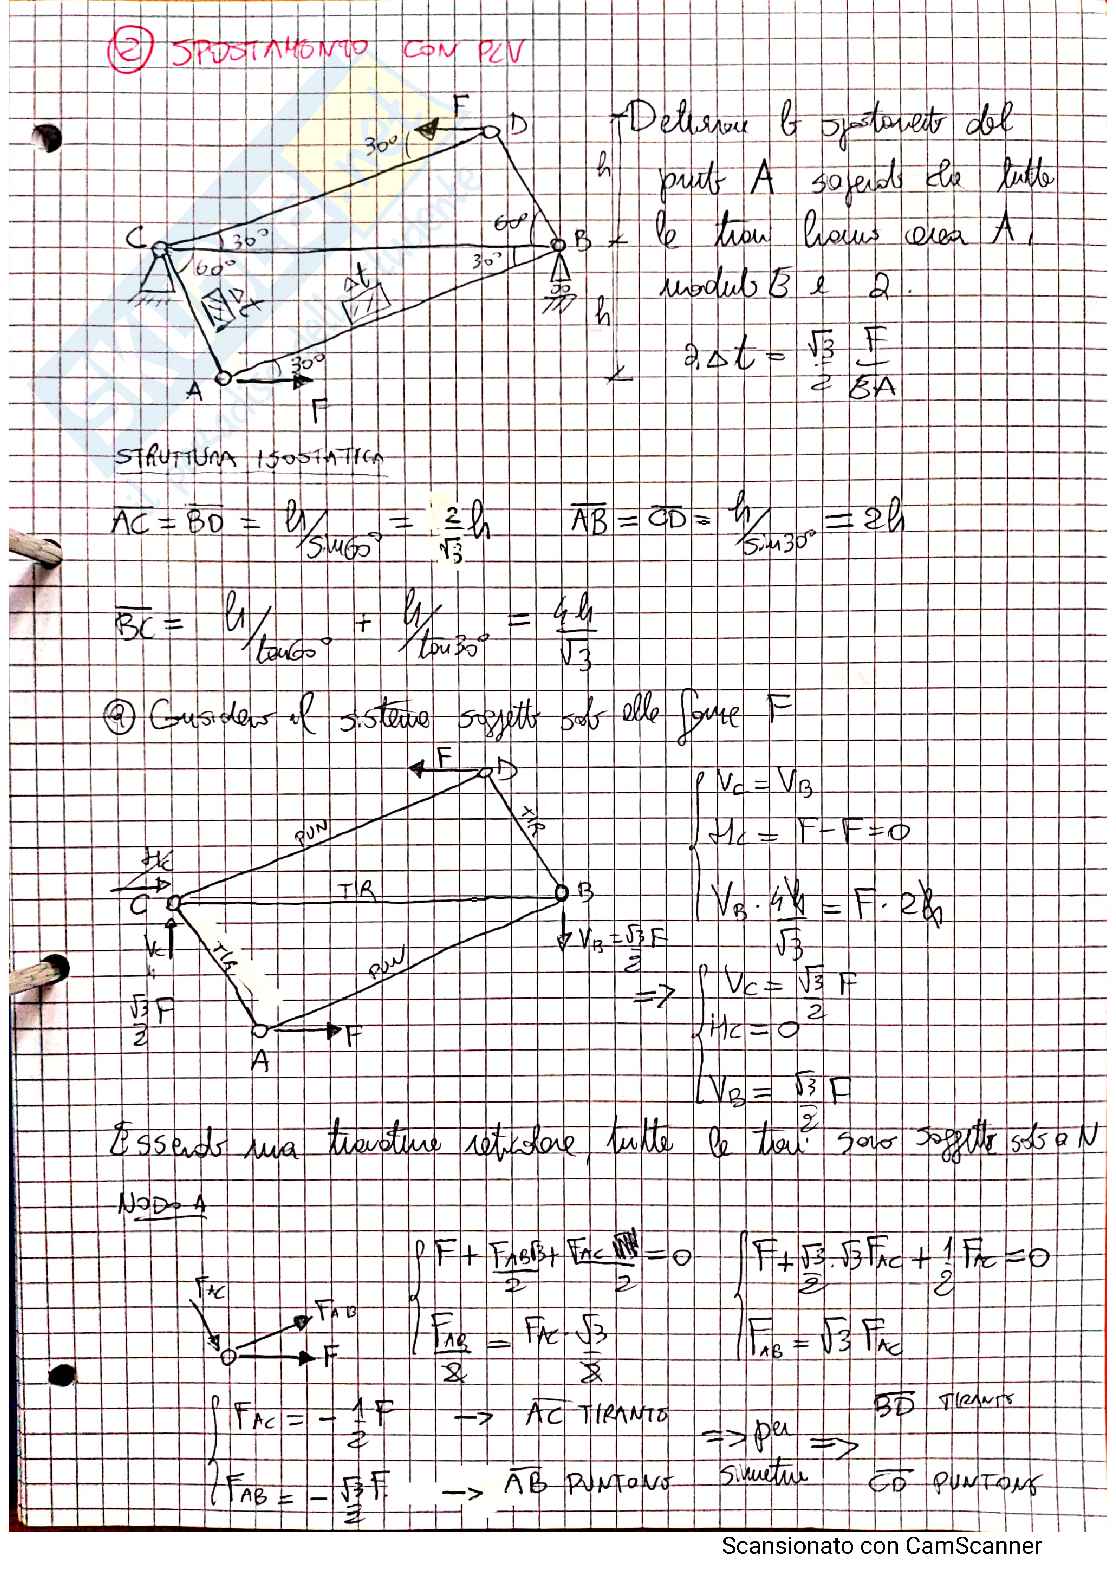 ② SPOSTAMENTO CON PLV
F
D
30°
h
C
30°
60°
B
60°
Δt
Δt
30°
h
A
30°
F
Determinare lo spostamento del
punto A sapendo che tutte
le travi hanno area A,
modulo E e α.
αΔt = √3/2 F/EA
STRUTTURA ISOSTATICA
AC = BD = h/sin60° = 2/√3 h AB = CD = h/sin30° = 2h
BC = h/tan60° + h/tan30° = 4h/√3
ⓐ Considero il sistema soggetto solo alle forze F
F
D
PUN
TIR
Hc
C
TIR
B
Vc
TIR
PUN
VB = √3/2 F
√3/2 F
A
F
Vc = VB
Hc = F - F = 0
VB · 4h/√3 = F · 2h
=> Vc = √3/2 F
Hc = 0
VB = √3/2 F
Essendo una travatura reticolare, tutte le travi sono soggette solo a N
NODO A
FAC
FAB
F
F + FAB√3/2 + FAC/2 = 0 F + √3/2 · √3 FAC + 1/2 FAC = 0
FAB/2 = FAC · √3/2 FAB = √3 FAC
FAC = - 1/2 F -> AC TIRANTE => per simetria => BD TIRANTE
FAB = - √3/2 F -> AB PUNTONE CD PUNTONE
Scansionato con CamScanner